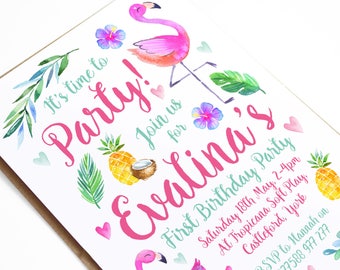 It's time to
Party!
Join us
for
Evalina's
First Birthday Party
Saturday 18th May, 2-4pm
At Tropicana Soft Play,
Castleford, York
RSVP to Hannah on